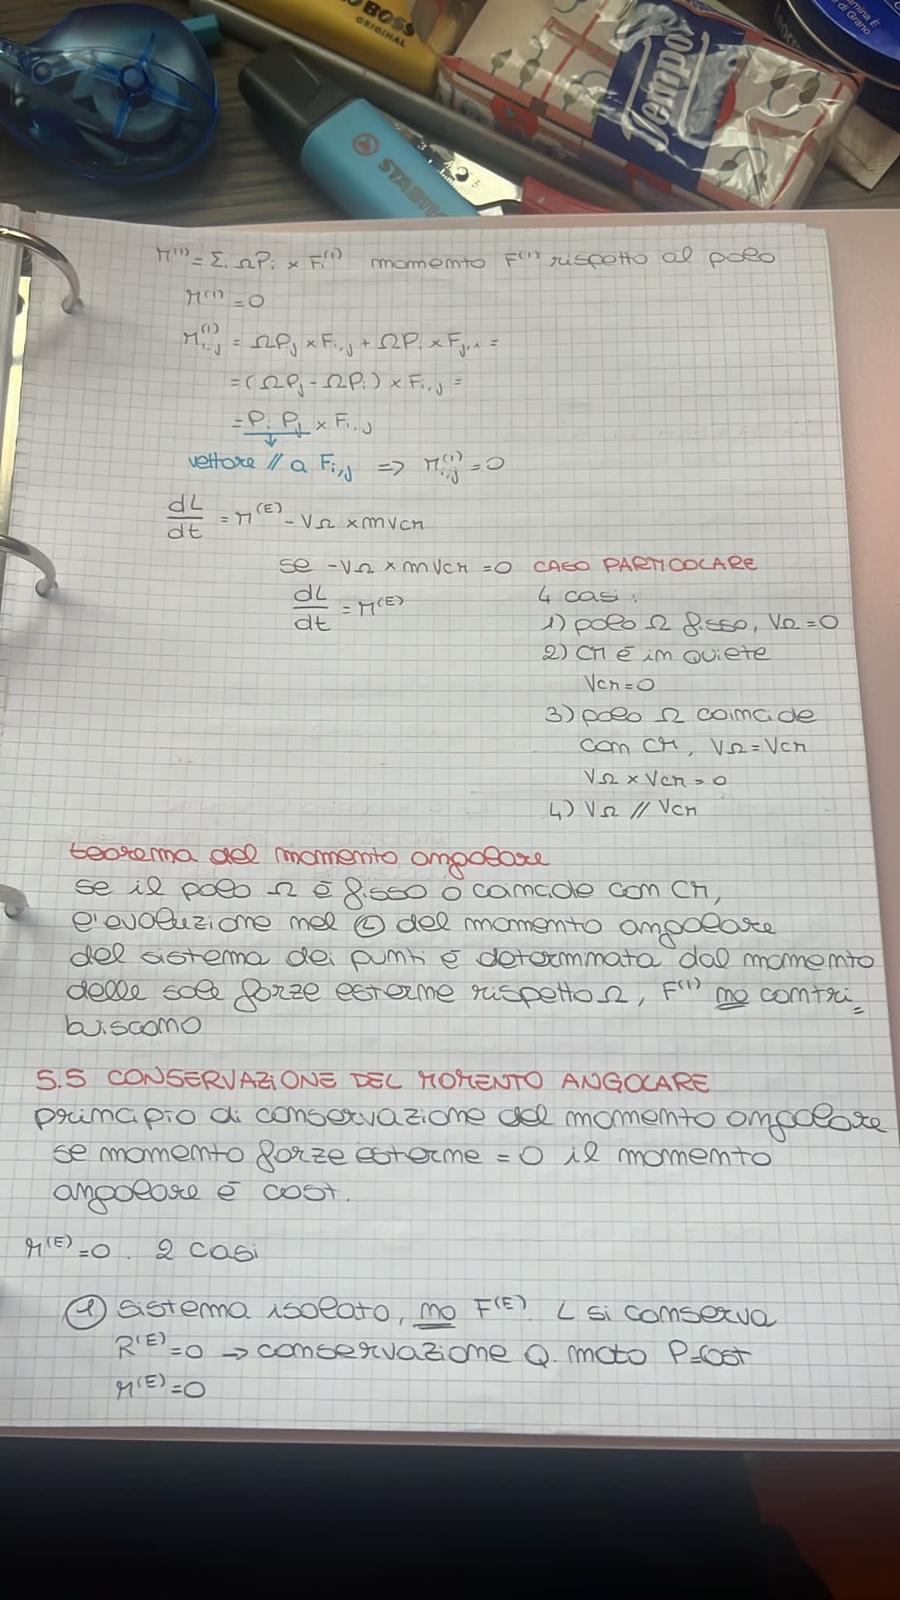 BOSS
ORIGINAL
Tempo
STABILO
di Grano
M⁽ᴵ⁾ = Σᵢ ΩPᵢ × Fᵢ⁽ᴵ⁾ momento F⁽ᴵ⁾ rispetto al polo
M⁽ᴵ⁾ = 0
Mᵢ,ⱼ⁽ᴵ⁾ = ΩPⱼ × Fᵢ,ⱼ + ΩPᵢ × Fⱼ,ᵢ =
= (ΩPⱼ - ΩPᵢ) × Fᵢ,ⱼ =
= Pᵢ Pⱼ × Fᵢ,ⱼ
vettore // a Fᵢ,ⱼ => Mᵢ,ⱼ⁽ᴵ⁾ = 0
dL/dt = M⁽ᴱ⁾ - VΩ × mVCM
se -VΩ × mVCM = 0 CASO PARTICOLARE
dL/dt = M⁽ᴱ⁾
4 casi:
1) polo Ω fisso, VΩ = 0
2) CM è in quiete
VCM = 0
3) polo Ω coincide
con CM, VΩ = VCM
VΩ × VCM = 0
4) VΩ // VCM
teorema del momento angolare
se il polo Ω è fisso o coincide con CM,
l'evoluzione nel ⓣ del momento angolare
del sistema dei punti è determinata dal momento
delle sole forze esterne rispetto Ω, F⁽ᴵ⁾ no contri=
buiscono
5.5 CONSERVAZIONE DEL MOMENTO ANGOLARE
principio di conservazione del momento angolare
se momento forze esterne = 0 il momento
angolare è cost.
M⁽ᴱ⁾ = 0. 2 casi
① sistema isolato, no F⁽ᴱ⁾. L si conserva
R⁽ᴱ⁾ = 0 → conservazione Q. moto P=cost
M⁽ᴱ⁾ = 0